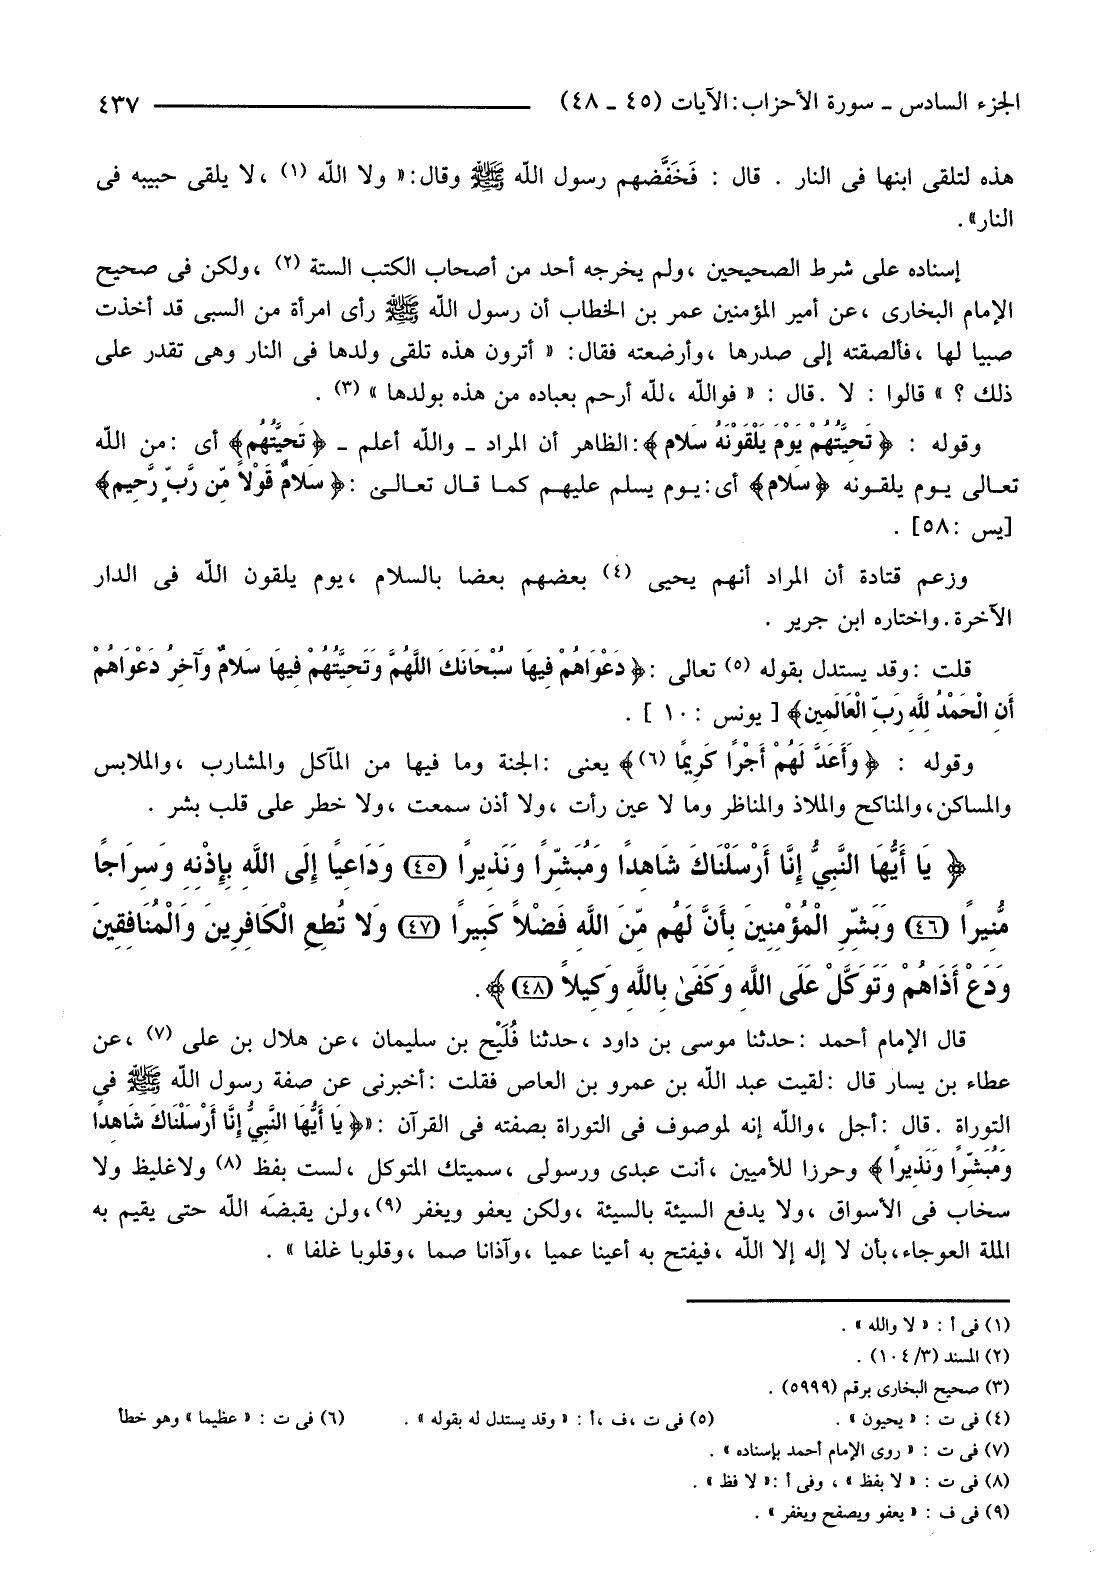 الجزء السادس ـ سورة الأحزاب: الآيات (٤٥ ـ ٤٨) ٤٣٧
هذه لتلقى ابنها فى النار . قال : فَخَفَّضهم رسول الله ﷺ وقال: « ولا الله (١) ، لا يلقى حبيبه فى
النار» .
إسناده على شرط الصحيحين ، ولم يخرجه أحد من أصحاب الكتب الستة (٢) ، ولكن فى صحيح
الإمام البخارى ، عن أمير المؤمنين عمر بن الخطاب أن رسول الله ﷺ رأى امرأة من السبى قد أخذت
صبيا لها ، فألصقته إلى صدرها ، وأرضعته فقال: « أترون هذه تلقى ولدها فى النار وهى تقدر على
ذلك ؟ » قالوا : لا . قال : « فوالله ، لله أرحم بعباده من هذه بولدها » (٣) .
وقوله : ﴿ تَحِيَّتُهُمْ يَوْمَ يَلْقَوْنَهُ سَلام ﴾: الظاهر أن المراد ـ والله أعلم ـ ﴿ تَحِيَّتُهُم﴾ أى : من الله
تعالى يوم يلقونه ﴿سَلام﴾ أى: يوم يسلم عليهم كما قال تعالى : ﴿ سَلامٌ قَوْلاً مِّن رَّبٍّ رَّحِيم﴾
[يس : ٥٨] .
وزعم قتادة أن المراد أنهم يحيى (٤) بعضهم بعضا بالسلام ، يوم يلقون الله فى الدار
الآخرة. واختاره ابن جرير .
قلت : وقد يستدل بقوله (٥) تعالى : ﴿ دَعْوَاهُمْ فِيهَا سُبْحَانَكَ اللَّهُمَّ وَتَحِيَّتُهُمْ فِيهَا سَلامٌ وَآخِرُ دَعْوَاهُمْ
أَنِ الْحَمْدُ لِلَّهِ رَبِّ الْعَالَمِين﴾ [ يونس : ١٠ ] .
وقوله : ﴿ وَأَعَدَّ لَهُمْ أَجْرًا كَرِيمًا (٦)﴾ يعنى : الجنة وما فيها من المآكل والمشارب ، والملابس
والمساكن، والمناكح والملاذ والمناظر وما لا عين رأت ، ولا أذن سمعت ، ولا خطر على قلب بشر .
﴿ يَا أَيُّهَا النَّبِيُّ إِنَّا أَرْسَلْنَاكَ شَاهِدًا وَمُبَشِّرًا وَنَذِيرًا (٤٥) وَدَاعِيًا إِلَى اللَّهِ بِإِذْنِهِ وَسِرَاجًا
مُّنِيرًا (٤٦) وَبَشِّرِ الْمُؤْمِنِينَ بِأَنَّ لَهُم مِّنَ اللَّهِ فَضْلاً كَبِيرًا (٤٧) وَلا تُطِعِ الْكَافِرِينَ وَالْمُنَافِقِينَ
وَدَعْ أَذَاهُمْ وَتَوَكَّلْ عَلَى اللَّهِ وَكَفَىٰ بِاللَّهِ وَكِيلاً (٤٨) ﴾ .
قال الإمام أحمد : حدثنا موسى بن داود ، حدثنا فُلَيْح بن سليمان ، عن هلال بن على (٧) ، عن
عطاء بن يسار قال : لقيت عبد الله بن عمرو بن العاص فقلت : أخبرنى عن صفة رسول الله ﷺ فى
التوراة . قال : أجل ، والله إنه لموصوف فى التوراة بصفته فى القرآن : « ﴿ يَا أَيُّهَا النَّبِيُّ إِنَّا أَرْسَلْنَاكَ شَاهِدًا
وَمُبَشِّرًا وَنَذِيرًا ﴾ وحرزا للأميين ، أنت عبدى ورسولى ، سميتك المتوكل ، لست بفظ (٨) ولاغليظ ولا
سخاب فى الأسواق ، ولا يدفع السيئة بالسيئة ، ولكن يعفو ويغفر (٩)، ولن يقبضه الله حتى يقيم به
الملة العوجاء، بأن لا إله إلا الله ، فيفتح به أعينا عميا ، وآذانا صما ، وقلوبا غلفا » .
(١) فى أ : « لا والله » .
(٢) المسند (٣/ ١٠٤) .
(٣) صحيح البخارى برقم (٥٩٩٩) .
(٤) فى ت : « يحيون» . (٥) فى ت ، ف ، أ : « وقد يستدل له بقوله » . (٦) فى ت : « عظيما » وهو خطأ
(٧) فى ت : « روى الإمام أحمد بإسناده » .
(٨) فى ت : « لا بفظ » ، وفى أ : « لا فظ » .
(٩) فى ف : « يعفو ويصفح ويغفر » .